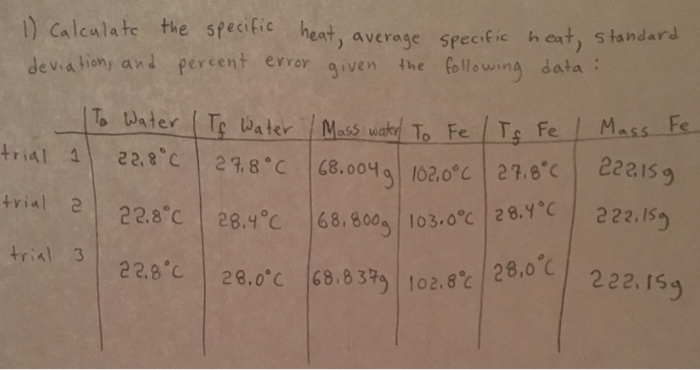 1) Calculate the specific heat, average specific heat, standard
deviation, and percent error given the following data:
To Water Tf Water Mass water To Fe Tf Fe Mass Fe
trial 1 22.8°C 27.8°C 68.004g 102.0°C 27.8°C 222.15g
trial 2 22.8°C 28.4°C 68.800g 103.0°C 28.4°C 222.15g
trial 3 22.8°C 28.0°C 68.837g 102.8°C 28.0°C 222.15g